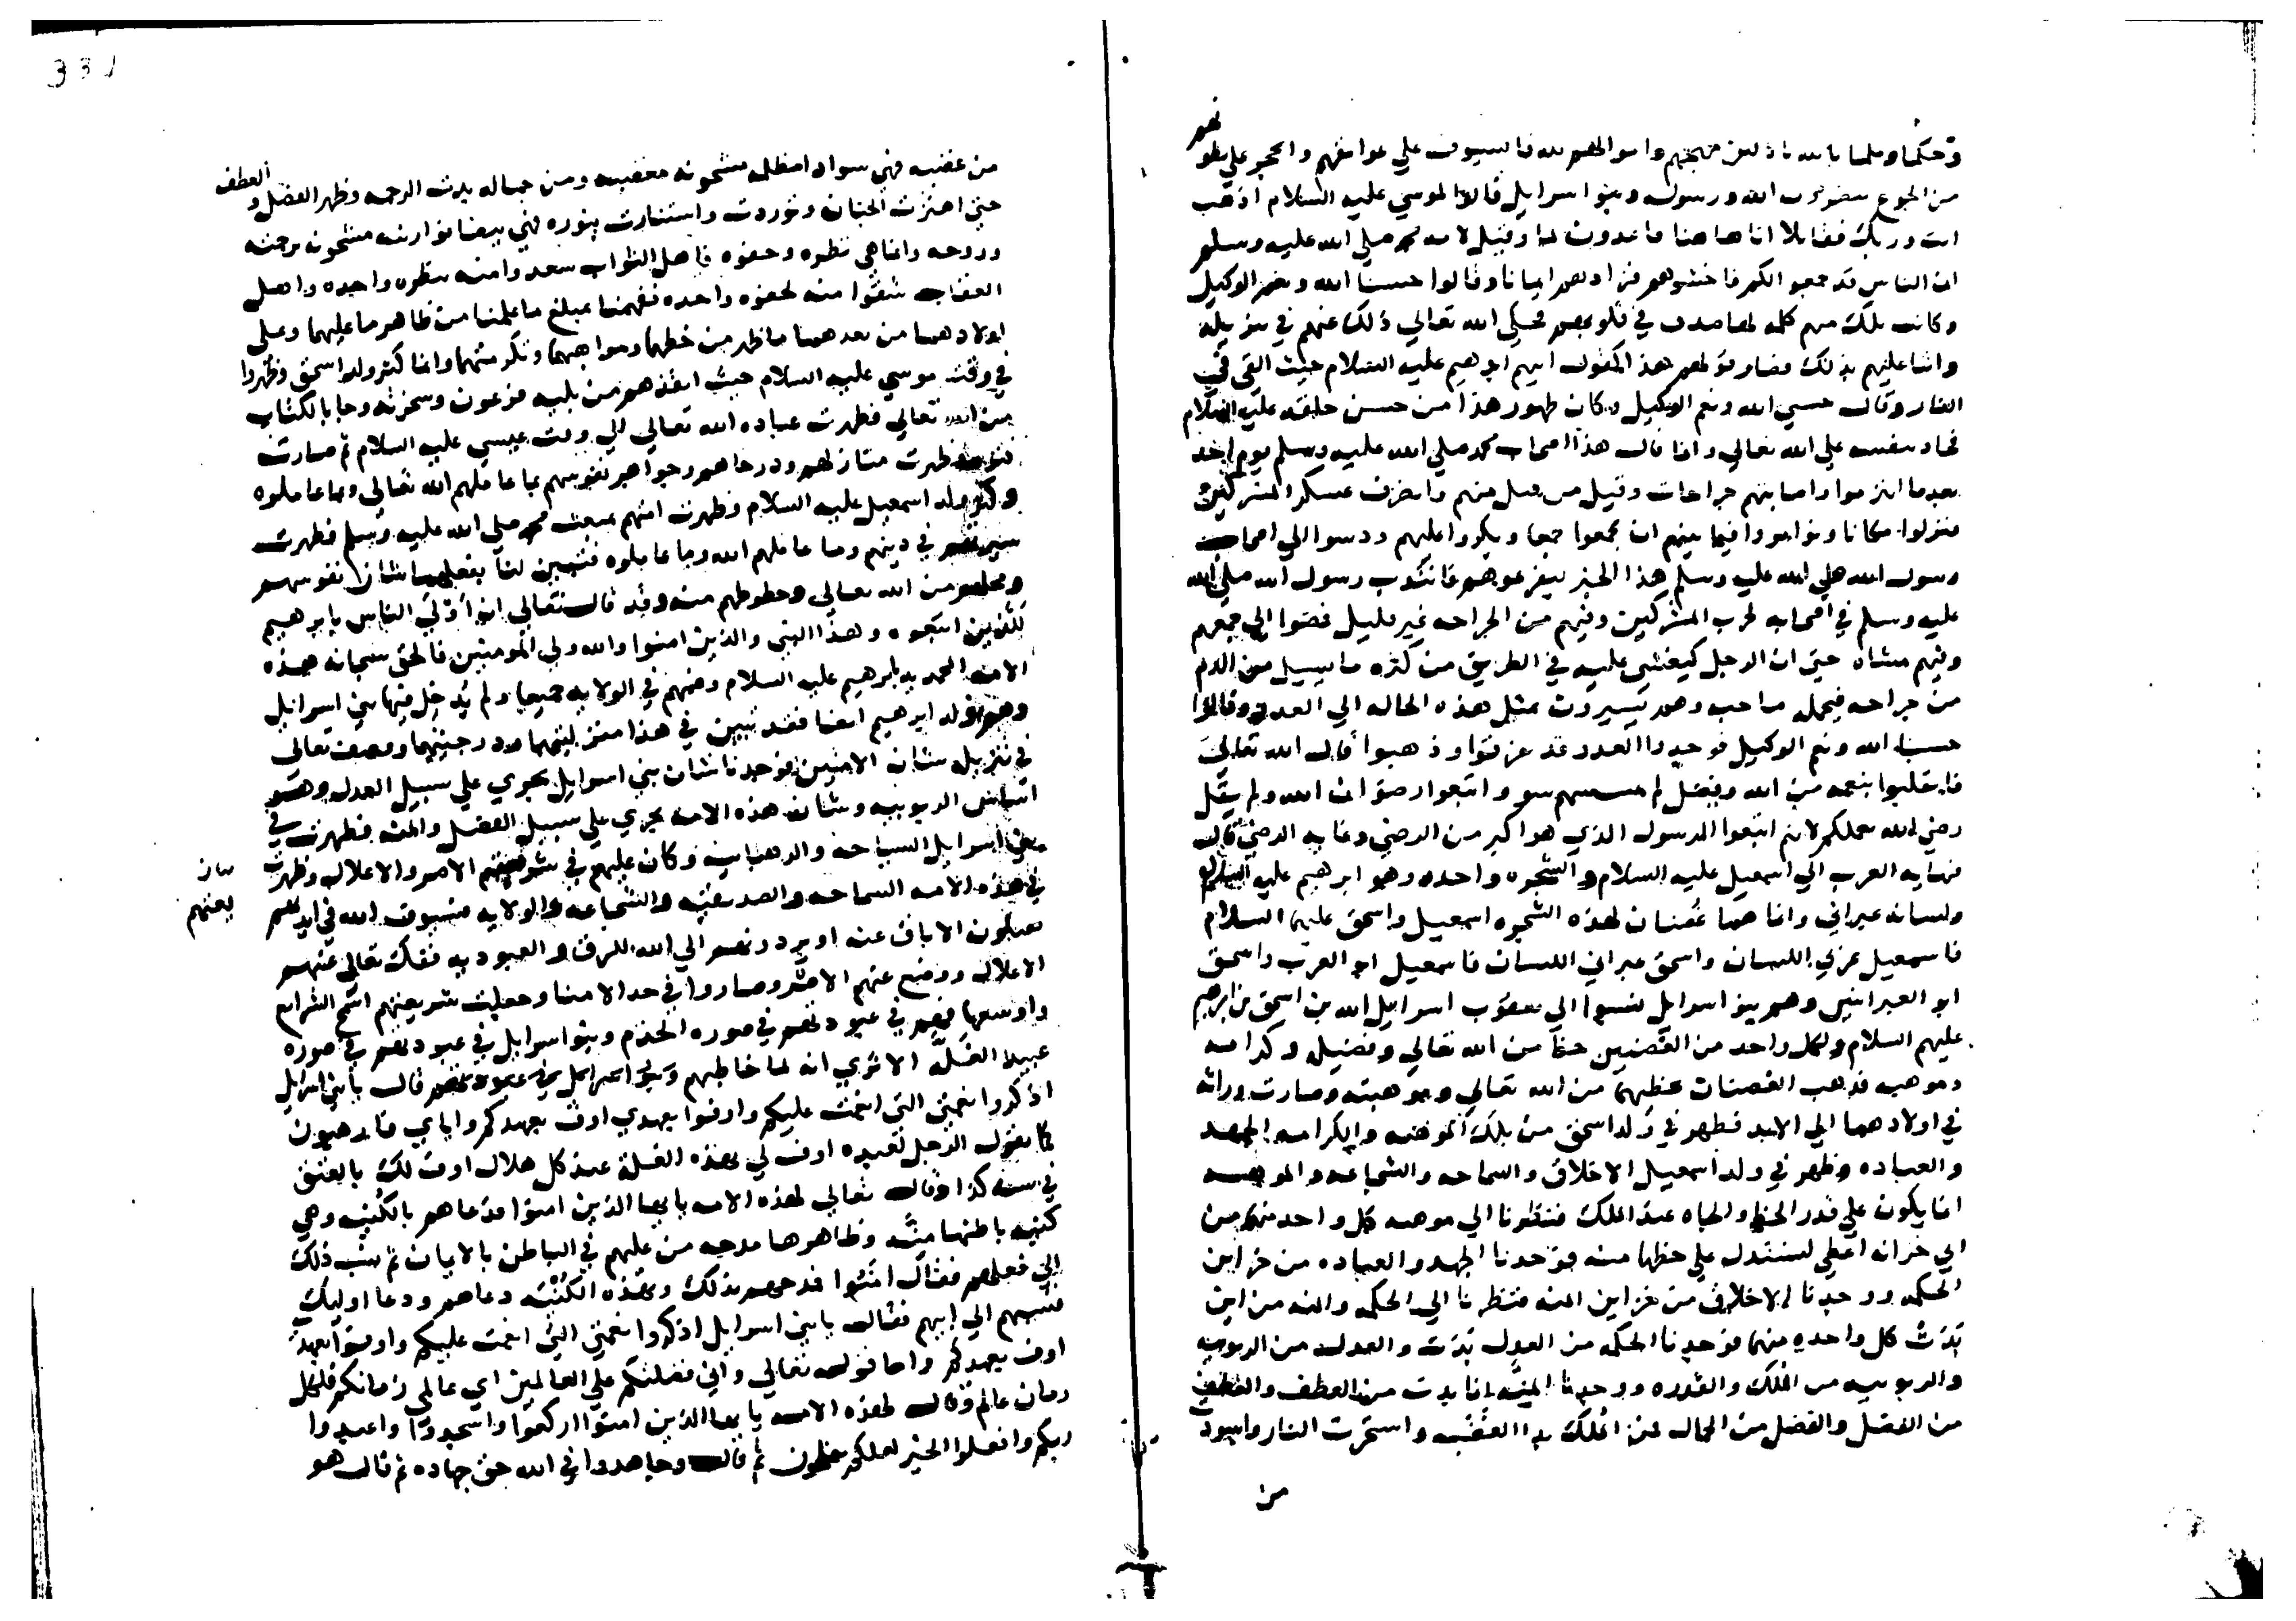 وحكما وعلما بالله باذلين مهجهم واموالهم لله فالسيوف علي عواتقهم والحجر علي بطونهم
من الجوع ينصرون الله ورسوله وبنوا اسرايل قالوا لموسي عليه السلام اذهب
انت وربك فقاتلا انا هاهنا قاعدون لما وقيل لامه محمد صلي الله عليه وسلم
ان الناس قد جمعوا لكم فاخشوهم فزادهم ايمانا وقالوا حسبنا الله ونعم الوكيل
وكانت تلك منهم كلمه لها صدق في قلوبهم فحكي الله تعالي ذلك عنهم في تنزيله
واثنا عليهم بذلك فصار قولهم هذا كقول ابيهم ابرهيم عليه السلام حيث القي في
النار وقال حسبي الله ونعم الوكيل وكان ظهور هذا من حسن خلقه عليه السلام
فجاد بنفسه علي الله تعالي وانما قال هذا اصحاب محمد صلي الله عليه وسلم يوم احد
بعدما انهزموا واصابتهم جراحات وقتل من قتل منهم وانصرف عسكر المشركين
فنزلوا مكانا وتوامروا فيما بينهم ان يجمعوا جمعا ويكروا عليهم ودسوا الي اصحاب
رسول الله صلي الله عليه وسلم هذا الخبر ليفزعوهم فانتدب رسول الله صلي الله
عليه وسلم في اصحابه لحرب المشركين وفيهم من الجراحه غير قليل فمضوا الي جمعهم
وفيهم مشاه حتي ان الرجل ليغشي عليه في الطريق من كثره ما يسيل من الدم
من جراحه فيحمله صاحبه وهم يسيرون بمثل هذه الحاله الي العدو وقالوا
حسبنا الله ونعم الوكيل فوجدوا العدو قد عزفوا وذهبوا قال الله تعالي
فانقلبوا بنعمه من الله وفضل لم يمسسهم سو واتبعوا رضوان الله ولم يقل
رضي الله عملكم لانهم اتبعوا الرسول الذي هو اكبر من الرضي وغايه الرضي قال
نهايه العرب الي اسمعيل عليه السلام والشجره واحده وهو ابرهيم عليه السلام
ولسانه عبراني وانما هما غصنان لهذه الشجره اسمعيل واسحق عليهما السلام
فاسمعيل عربي اللسان واسحق عبراني اللسان فاسمعيل ابو العرب واسحق
ابو العبرانيين وهم بنو اسرايل نسبوا الي يعقوب اسرايل الله بن اسحق بن ابرهيم
عليهم السلام ولكل واحد من الغصنين حظا من الله تعالي وفضيله وكرامه
وموهبه فذهب الغصنان بحظهما من الله تعالي وموهبته وصارت وراثه
في اولادهما الي الابد فظهر في ولد اسحق من تلك الموهبه والكرامه الجهد
والعباده وظهر في ولد اسمعيل الاخلاق والسماحه والشجاعه والموهبه
انما يكون علي قدر الحظ والجاه عند الملك فنظرنا الي موهبه كل واحد منهما من
اي خزانه اعطي لنستدل علي حظهما منه فوجدنا الجهد والعباده من خزاين
الحكمه ووجدنا الاخلاق من خزاين المنه فنظرنا الي الحكمه والمنه من اين
بدت كل واحده منهما فوجدنا الحكمه من العدل بدت والعدل من الربوبيه
والربوبيه من الملك والقدره ووجدنا المنه انما بدت من العطف والعطف
من الفضل والفضل من الجمال فمن الملك بدا الغضب واستعرت النار واسودت
من
331
من غضبه فهي سودا مظلمه مشحونه بغضبه ومن جماله بدت الرحمه وظهر الفضل والعطف
حتي اهتزت الجنان وتوردت واستنارت بنوره فهي بيضا نورانيه مشحونه برحمته
وروحه وانما هي نظره وجفوه فاهل الثواب سعدوا منه بنظره واحده واهل
العقاب شقوا منه بجفوه واحده ففهمنا بمبلغ ما علمنا من ظاهر ما عليهما وعلي
اولادهما من بعدهما ما ظهر من حظهما ومواهبهما وتكرمتهما وانما كثر ولد اسحق وظهروا
في وقت موسي عليه السلام حيث انقذهم من بليه فرعون وسحرته وجا بالكتاب
من الله تعالي فظهرت عباده الله تعالي الي وقت عيسي عليه السلام ثم صارت
فظهرت منازلهم ودرجاهم وجواهر نفوسهم بما عاملهم الله تعالي وبما عاملوه
وكثر ولد اسمعيل عليه السلام وظهرت امتهم بمبعث محمد صلي الله عليه وسلم فظهرت
سيرتهم في دينهم وما عاملهم الله وما عاملوه فتبين لنا بفعلهما شان نفوسهم
ومحلهم من الله تعالي وحظوظهم منه وقد قال تعالي ان اولي الناس بابرهيم
للذين اتبعوه وهذا النبي والذين امنوا والله ولي المومنين فالحق سبحانه هذه
الامه المحمديه بابرهيم عليه السلام وضمهم في الولايه جميعا ولم يدخل فيها بني اسرايل
وهم ولد ابرهيم ايضا فقد تبين في هذا منزلتهما ودرجتهما ووصف تعالي
في تنزيله شان الامتين فوجدنا شان بني اسرايل يجري علي سبيل العدل وهو
اقتباس الربوبيه وشان هذه الامه يجري علي سبيل الفضل والمنه فظهرت في
بني اسرايل السياحه والرهبانيه وكان عليهم في شريعتهم الاصر والاغلال وظهرت
في هذه الامه السماحه والصديقيه والشجاعه والولايه فسيوف الله في ايديهم
يقتلون الاباق عنه او يردونهم الي الله للرق والعبوديه ففك تعالي عنهم
الاغلال ووضع عنهم الاصر وصاروا في حد الامنا وجعلت شريعتهم اسمح الشرايع
واوسعها فهم في عبودتهم في صوره الخدم وبنو اسرايل في عبودتهم في صوره
عبيد الغله الا تري انه لما خاطبهم قال يا بني اسرايل
اذكروا نعمتي التي انعمت عليكم واوفوا بعهدي اوف بعهدكم واياي فارهبون
كما يقول الرجل لعبده اوف لي بهذه الغله عند كل هلال اوف لك بالعتق
في سنه كذا وقال تعالي لهذه الامه يا ايها الذين امنوا فدعاهم بالكنيه وهي
كنيه باطنها منه وظاهرها مدحه من عليهم في الباطن بالايمان ثم نسب ذلك
الي فعلهم فقال امنوا فمدحهم بذلك وبهذه الكنيه دعاهم ودعا اوليك
فنسبهم الي ابيهم فقال يا بني اسرايل اذكروا نعمتي التي انعمت عليكم واوفوا بعهدي
اوف بعهدكم واما قوله تعالي واني فضلتكم علي العالمين اي عالمي زمانكم فلكل
زمان عالم وقال لهذه الامه يا ايها الذين امنوا اركعوا واسجدوا واعبدوا
ربكم وافعلوا الخير لعلكم تفلحون ثم قال وجاهدوا في الله حق جهاده ثم قال هو